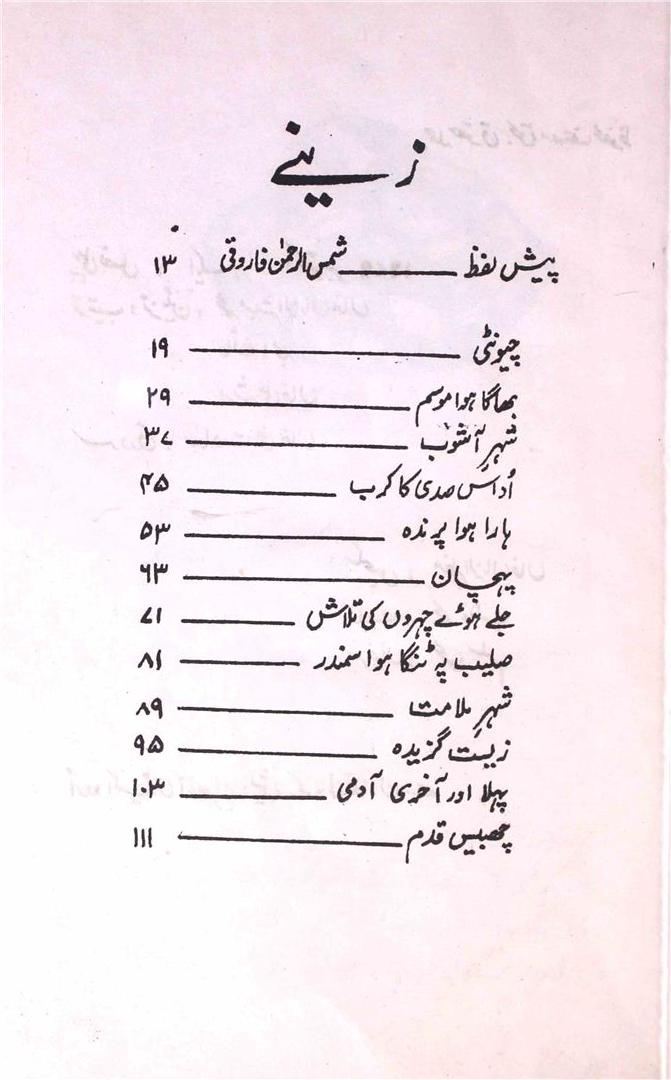 زینے
پیش لفظ ــــــ شمس الرحمٰن فاروقی ۱۳
چیونٹی ــــــ ۱۹
بھاگا ہوا موسم ــــــ ۲۹
شہرِ آشوب ــــــ ۳۷
اُداس صدی کا کرب ــــــ ۴۵
ہارا ہوا پرندہ ــــــ ۵۳
پہچان ــــــ ۶۳
جلے ہوئے چہروں کی تلاش ــــــ ۷۱
صلیب پہ ٹنگا ہوا سمندر ــــــ ۸۱
شہرِ ملامت ــــــ ۸۹
زیست گزیدہ ــــــ ۹۵
پہلا اور آخری آدمی ــــــ ۱۰۳
چھبیس قدم ــــــ ۱۱۱